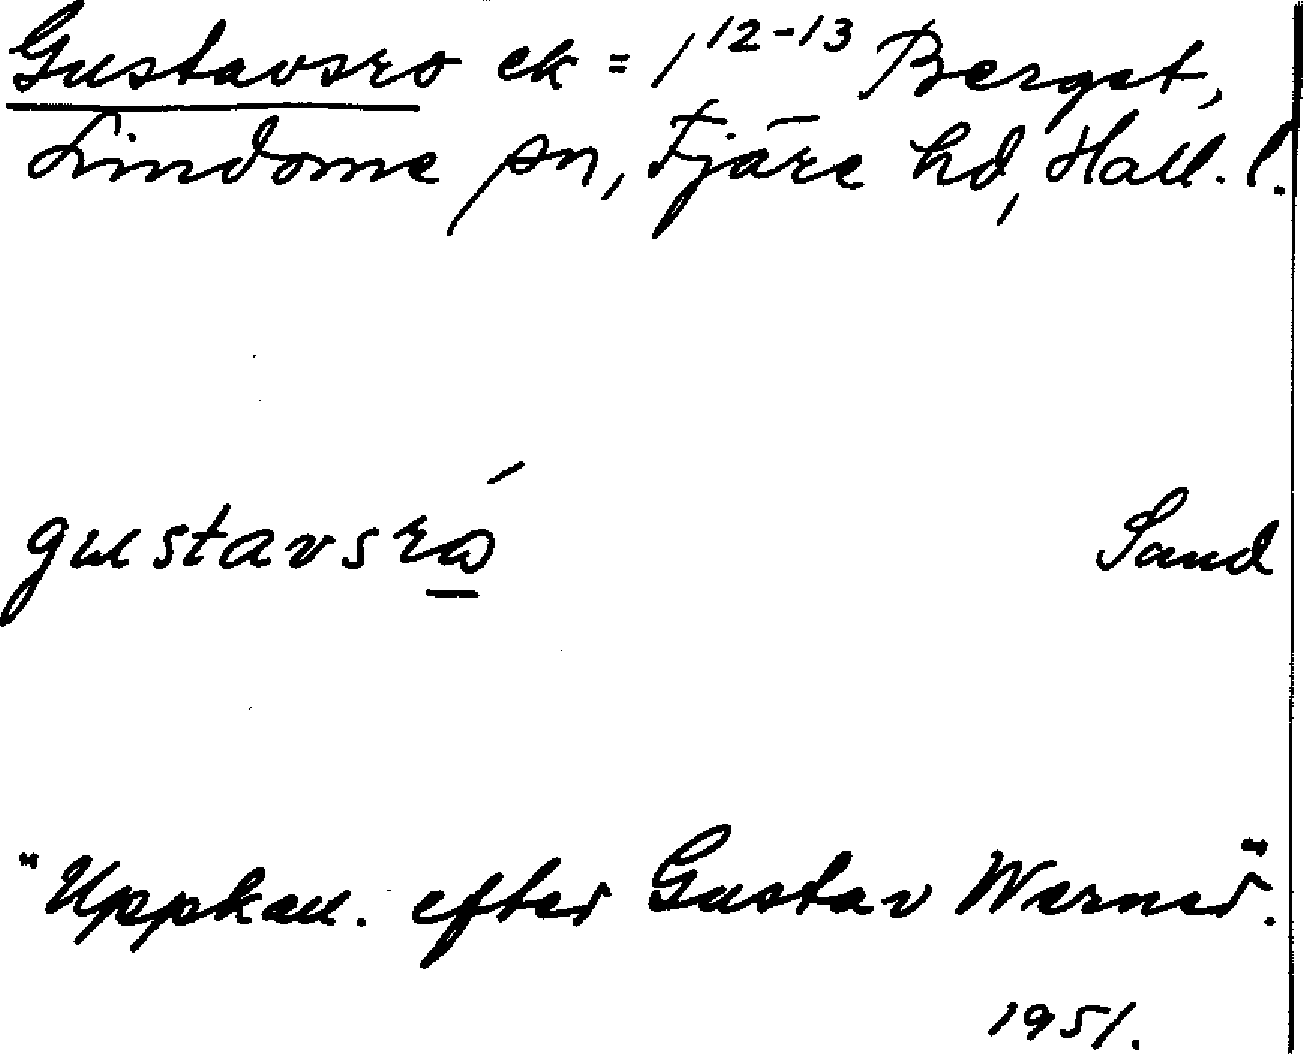 Gustavsro ek = 1 12-13 Berget,
Lindome sn, Fjäre hd, Hall. l.
gustavsró Sand
"Uppkall. efter Gustav Werner".
1951.